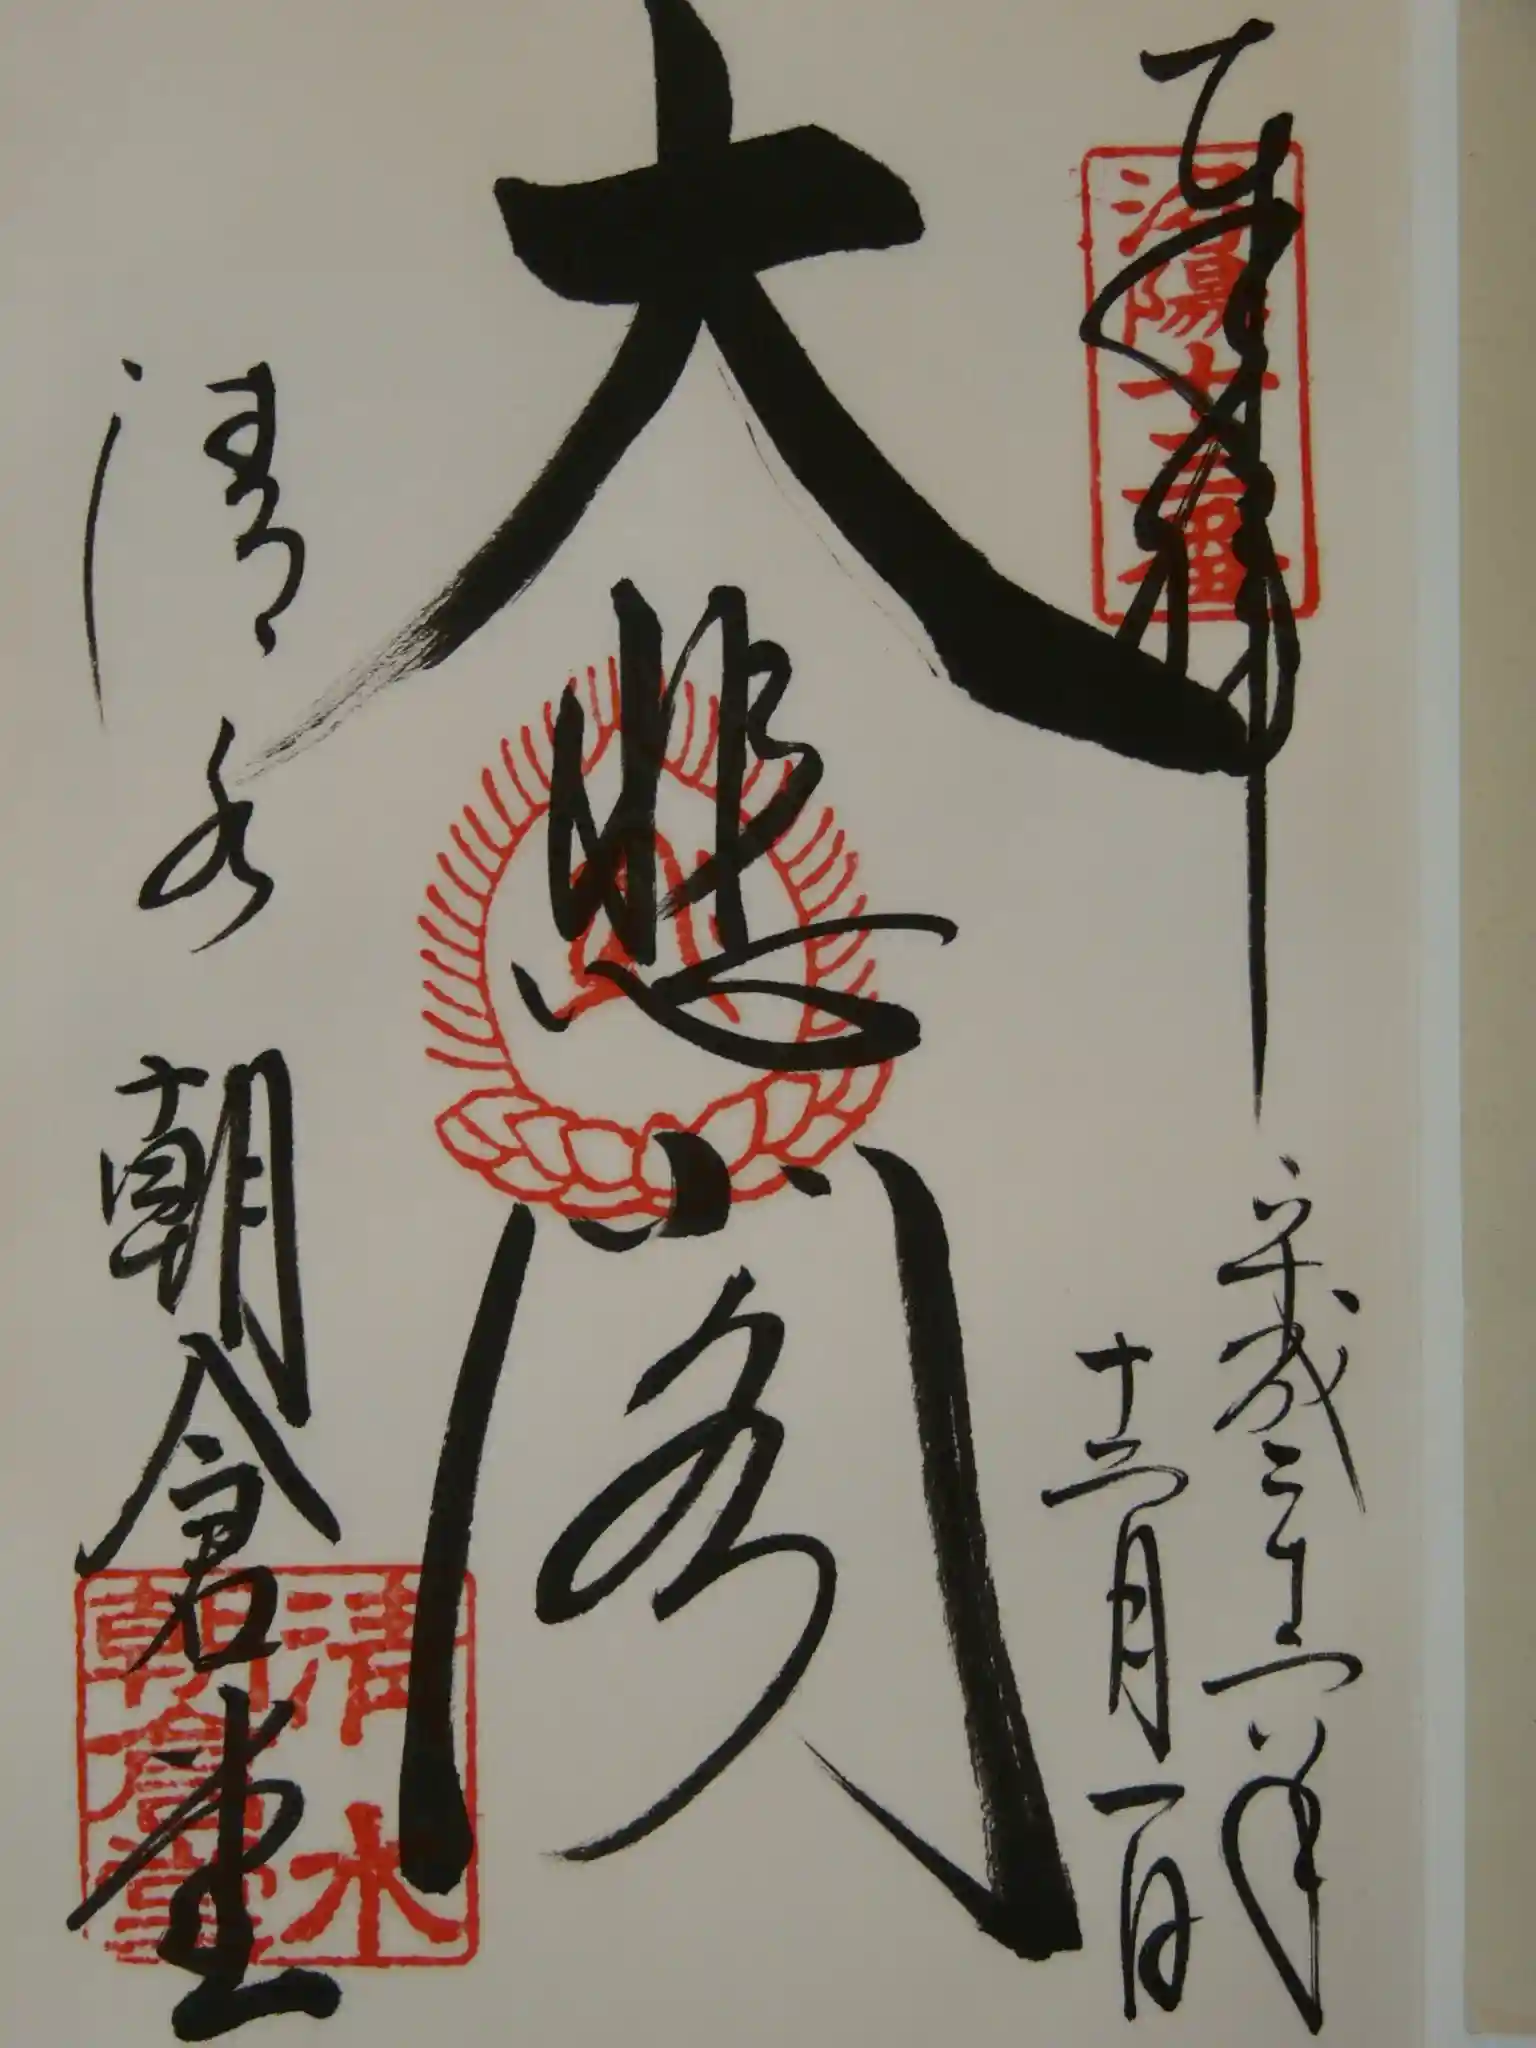 奉拝
洛陽十三番
平成二十六年
十二月一日
大悲閣
清水 朝倉堂
清水
朝倉堂